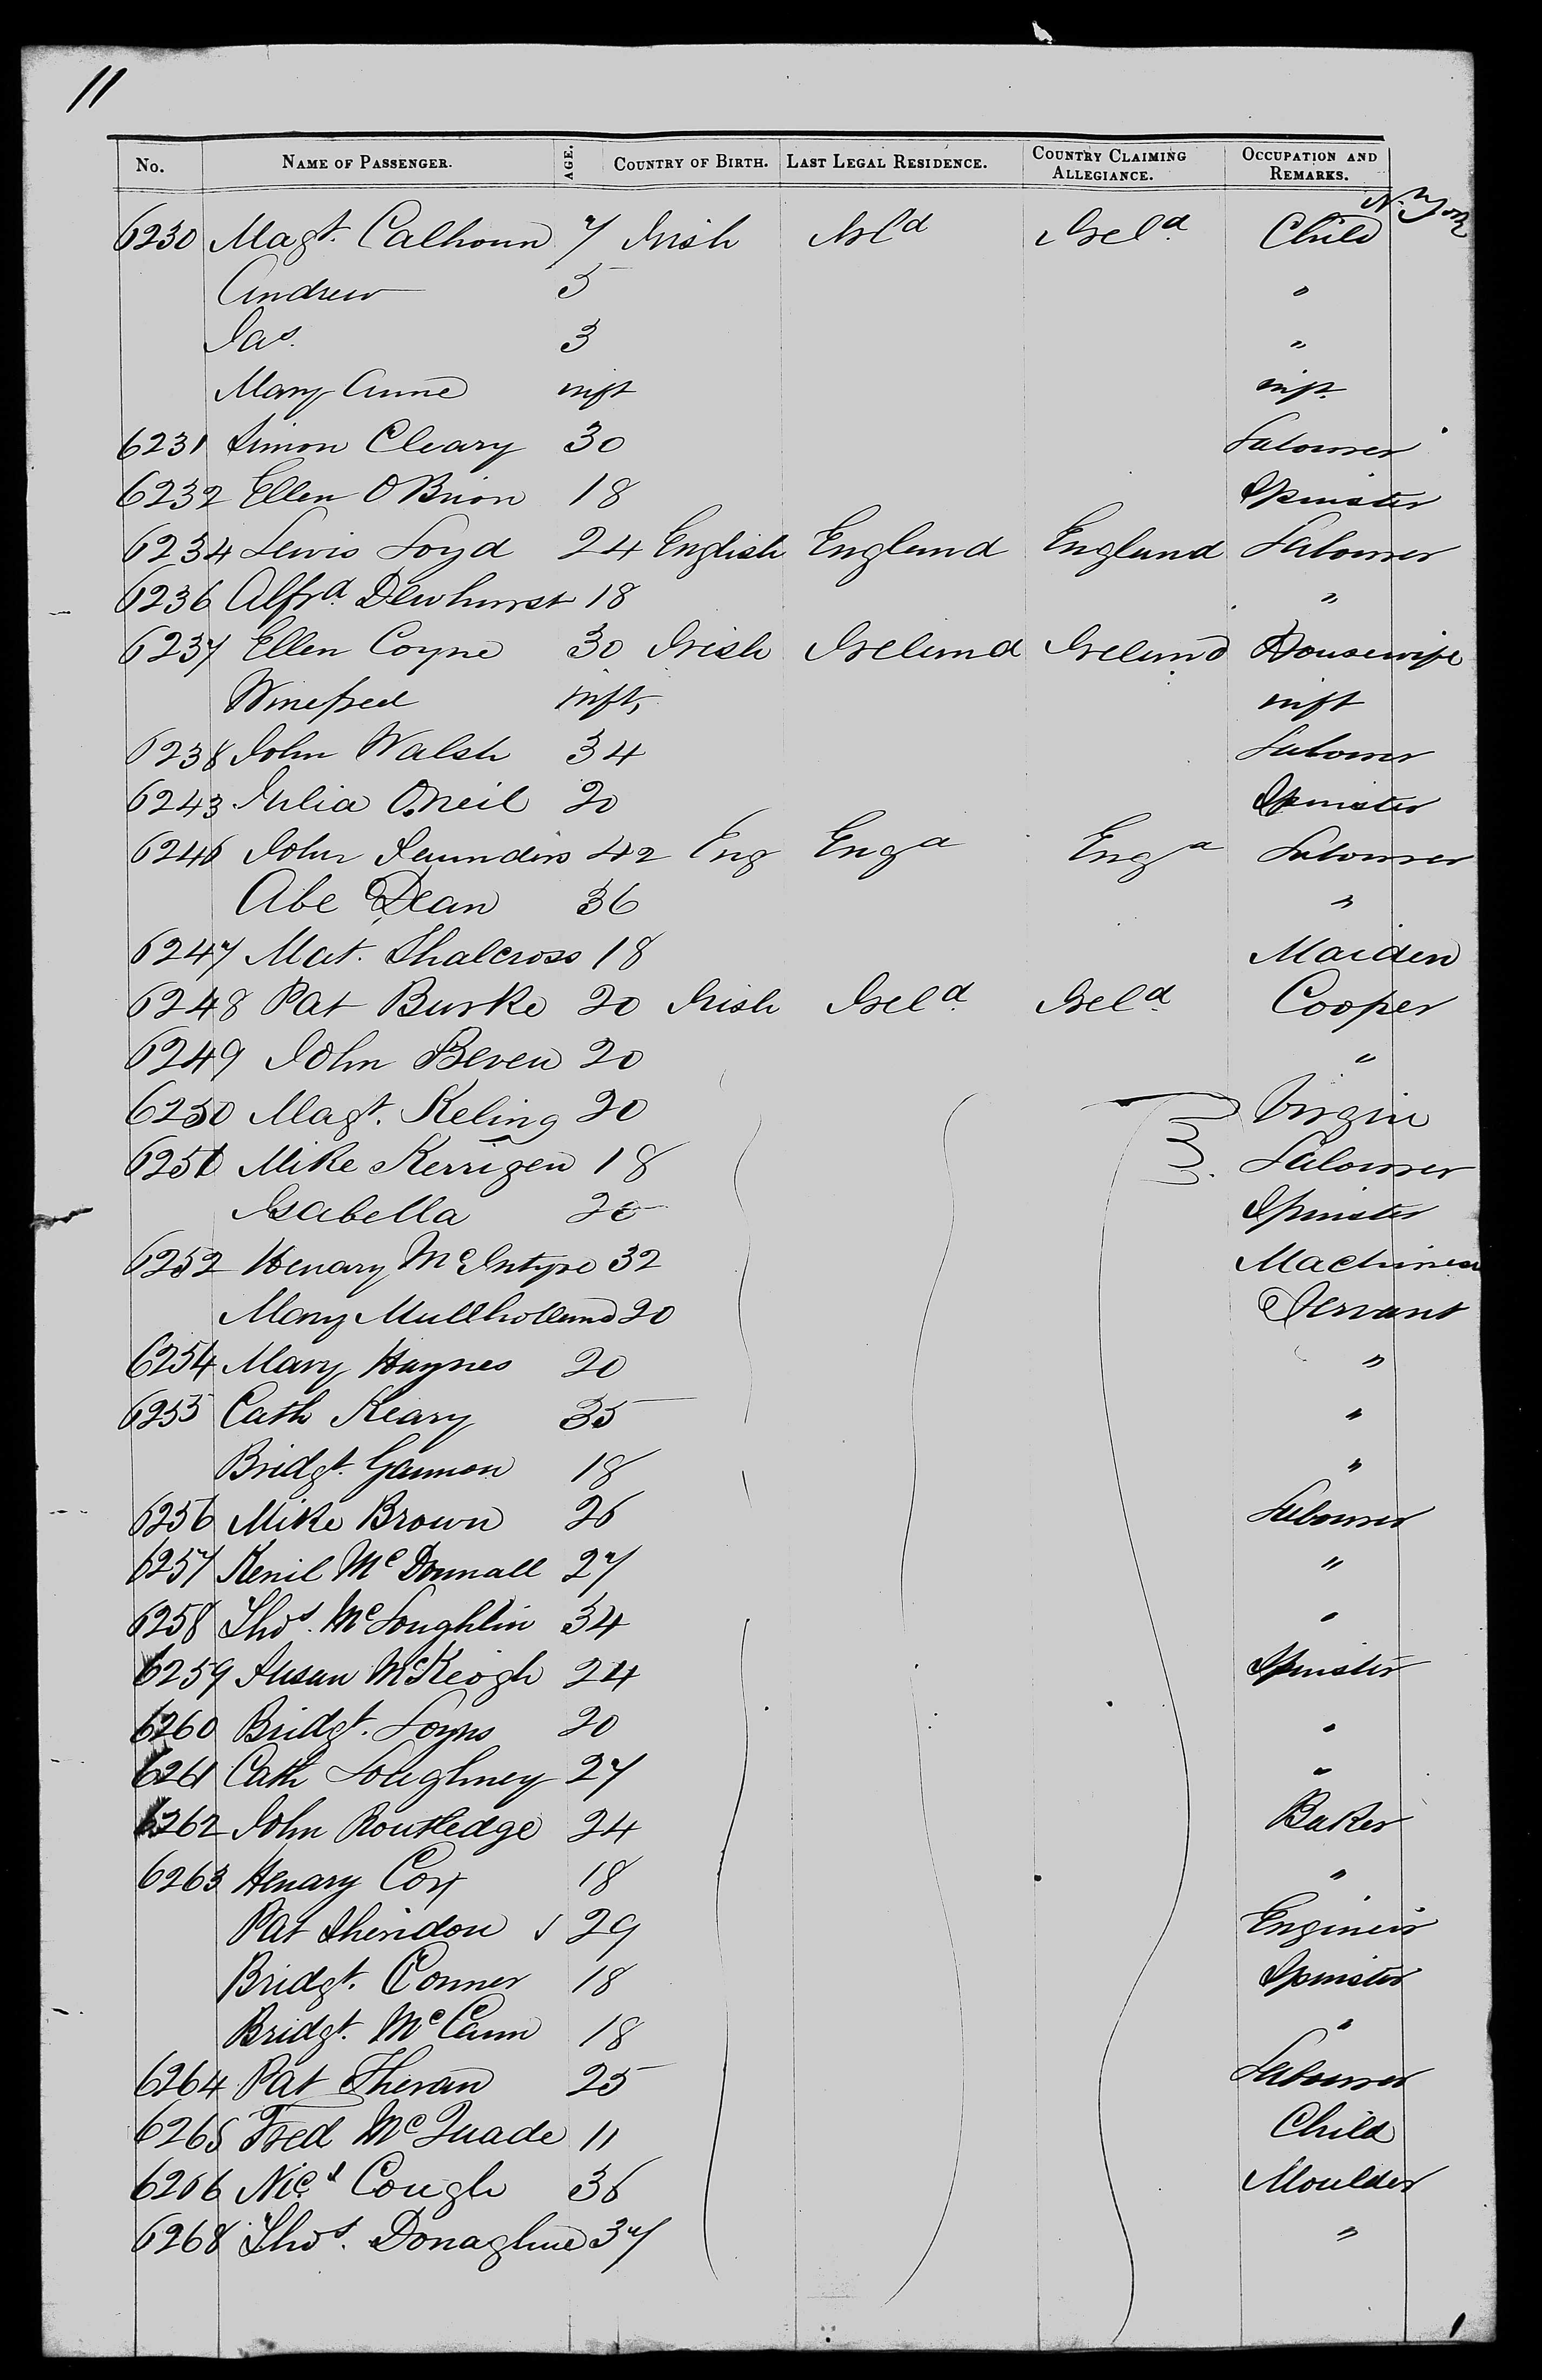 11
No. NAME OF PASSENGER. AGE. COUNTRY OF BIRTH. LAST LEGAL RESIDENCE. COUNTRY CLAIMING ALLEGIANCE. OCCUPATION AND REMARKS.
N. York
6230 Magt. Calhoun 7 Irish Irld Ireld. Child
Andrew 5 "
Jas. 3 "
Mary Anne inft inft.
6231 Simon Cleary 30 Labourer
6232 Ellen O Brion 18 Spinster
6234 Lewis Loyd 24 English England England Labourer
6236 Alfrd. Dewhurst 18 "
6237 Ellen Coyne 30 Irish Ireland Ireland Housewife
Winefred inft, inft
6238 John Walsh 34 Labourer
6243 Julia O.neil 20 Spinster
6246 John Saunders 42 Eng Engd Engd Labourer
Abe Dean 36 "
6247 Mat. Shalcross 18 Maiden
6248 Pat Burke 20 Irish Ireld. Ireld. Cooper
6249 John Beven 20 "
6250 Magt. Keling 20 Virgin
6251 Mike Kerrigen 18 Labourer
Isabella 20 Spinster
6252 Henary McIntyre 32 Machinest
Mary Mullholland 20 Servant
6254 Mary Haynes 20 "
6255 Cath Keary 35 "
Bridgt. Gannon 18 "
6256 Mike Brown 26 Labourer
6257 Kenil McDonnall 27 "
6258 Thos. McLoughlin 34 "
6259 Susan McKeogh 24 Spinster
6260 Bridgt. Loyns 20 "
6261 Cath Loughney 27 "
6262 John Routledge 24 Baker
6263 Henary Cox 18 "
Pat Sheridon 29 Engineir
Bridgt. Conner 18 Spinster
Bridgt. McCann 18 "
6264 Pat Sheran 25 Labourer
6265 Fred McQuade 11 Child
6266 Nics Cough 36 Moulder
6268 Thos. Donaghue 37 "